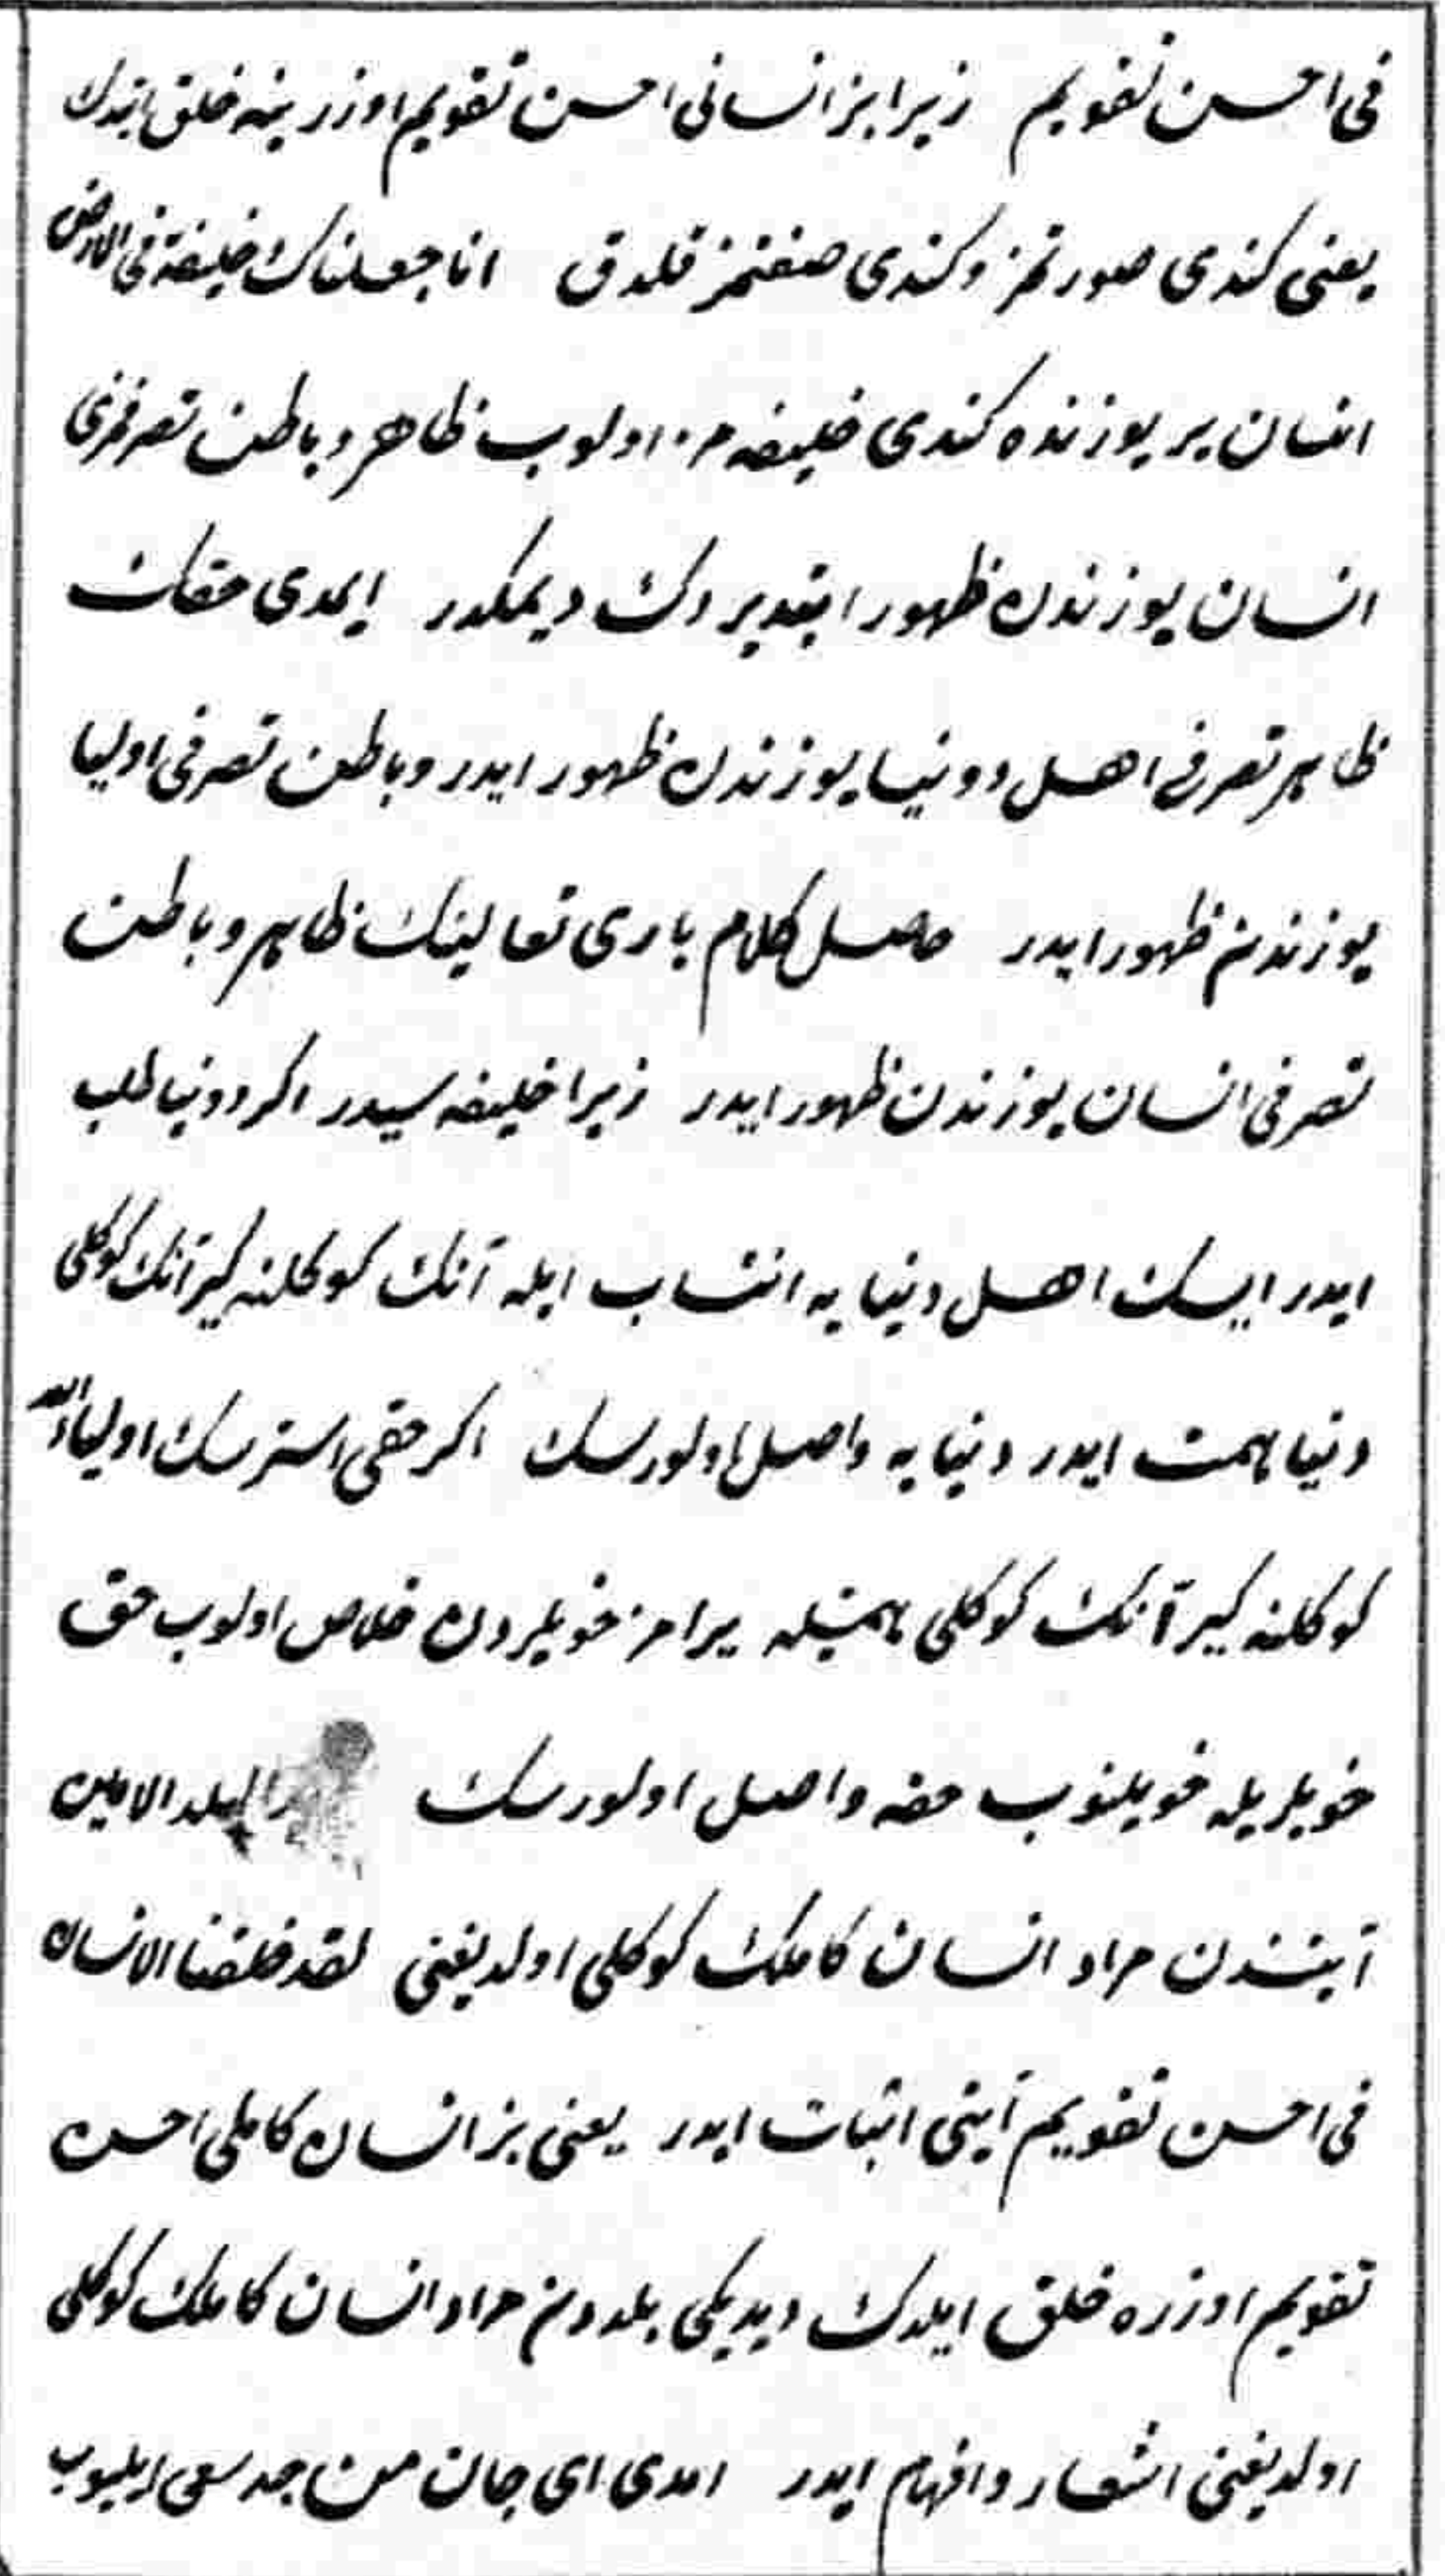 فی احسن تقویم زیرا بز انسانی احسن تقویم اوزرینه خلق ایتدك
یعنی کندی صورتمز و کندی صفتمز قلدق انا جعلناك خلیفة فی الارض
انسان یر یوزنده کندی خلیفه مز اولوب ظاهر و باطن تصرفمزی
انسان یوزندن ظهور ایتدیردك دیمکدر ایمدی حقك
ظاهر تصرفی اهل دونیا یوزندن ظهور ایدر و باطن تصرفی اولیا
یوزندن ظهور ایدر حاصل کلام باری تعالینك ظاهر و باطن
تصرفی انسان یوزندن ظهور ایدر زیرا خلیفه سیدر اکر دونیا طلب
ایدر ایسك اهل دنیا یه انتساب ایله آنك کوکلنه کیر آنك کوکلی
دنیا همت ایدر دنیا یه واصل اولورسك اکر حقی استرسك اولیاء الله
کوکلنه کیر آنك کوکلی همتیله یرامز خویلردن خلاص اولوب حق
خویلریله خویلنوب حقه واصل اولورسك البلد الامین
آیتندن مراد انسان کاملك کوکلی اولدیغنی لقد خلقنا الانسان
فی احسن تقویم آیتی اثبات ایدر یعنی بز انسان کاملی احسن
تقویم اوزره خلق ایلدك دیدیکی بلددن مراد انسان کاملك کوکلی
اولدیغنی اشعار و افهام ایدر امدی ای جان من جد سعی ایلیوب